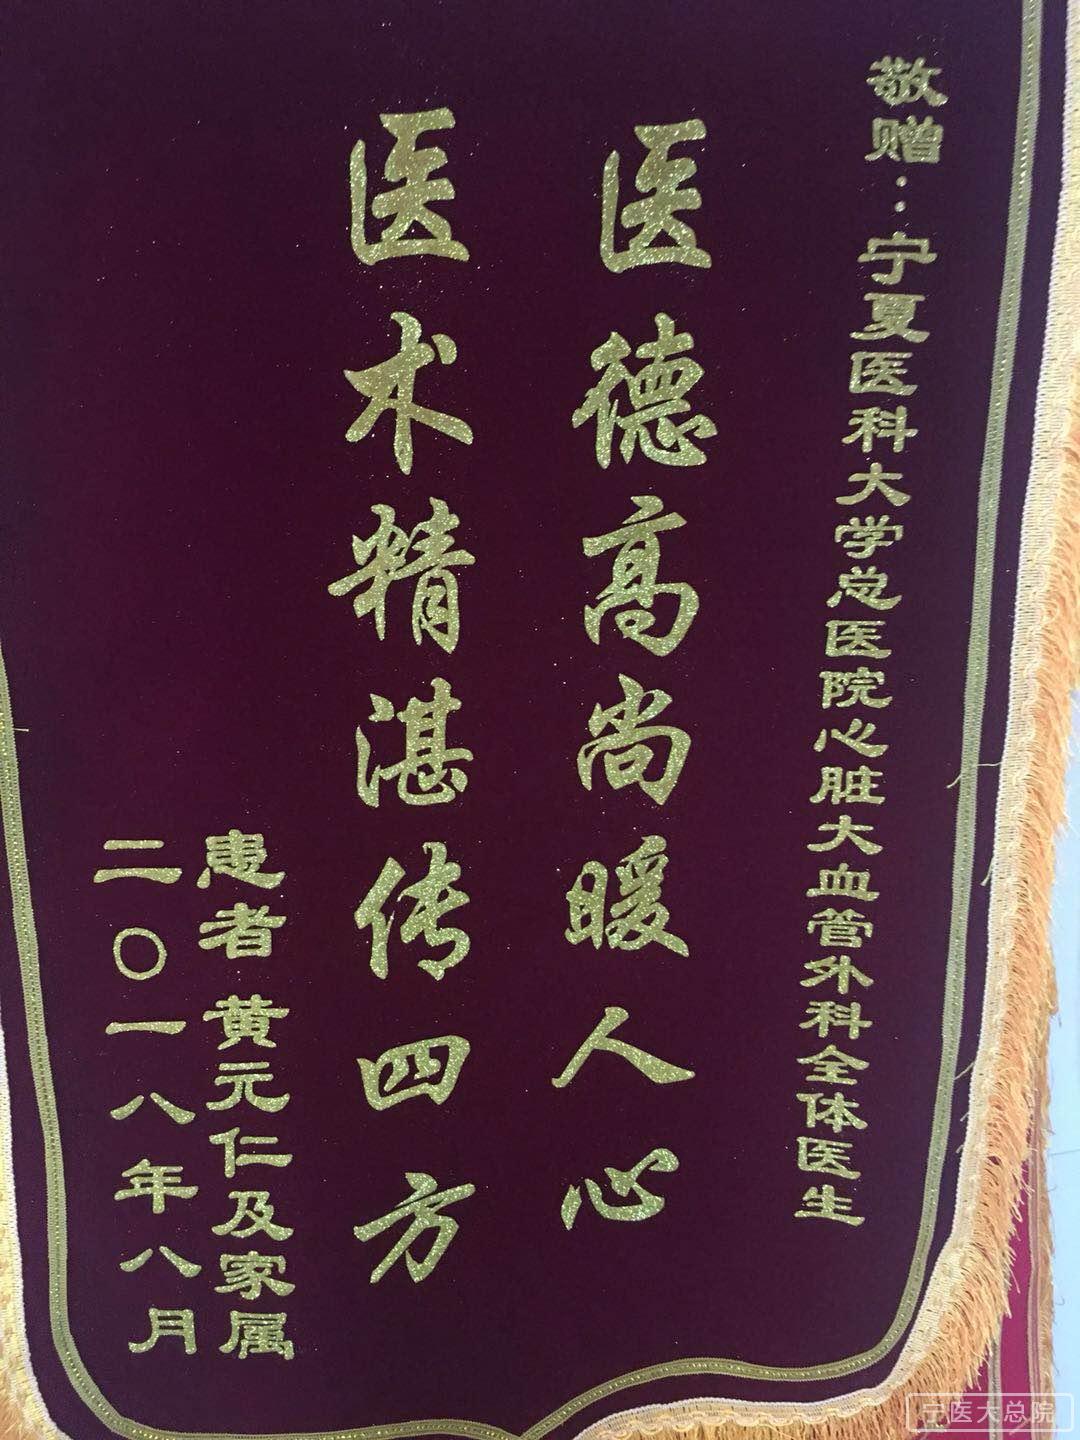 敬赠：宁夏医科大学总医院心脏大血管外科全体医生
医德高尚暖人心
医术精湛传四方
患者 黄元仁及家属
二〇一八年八月
宁医大总院